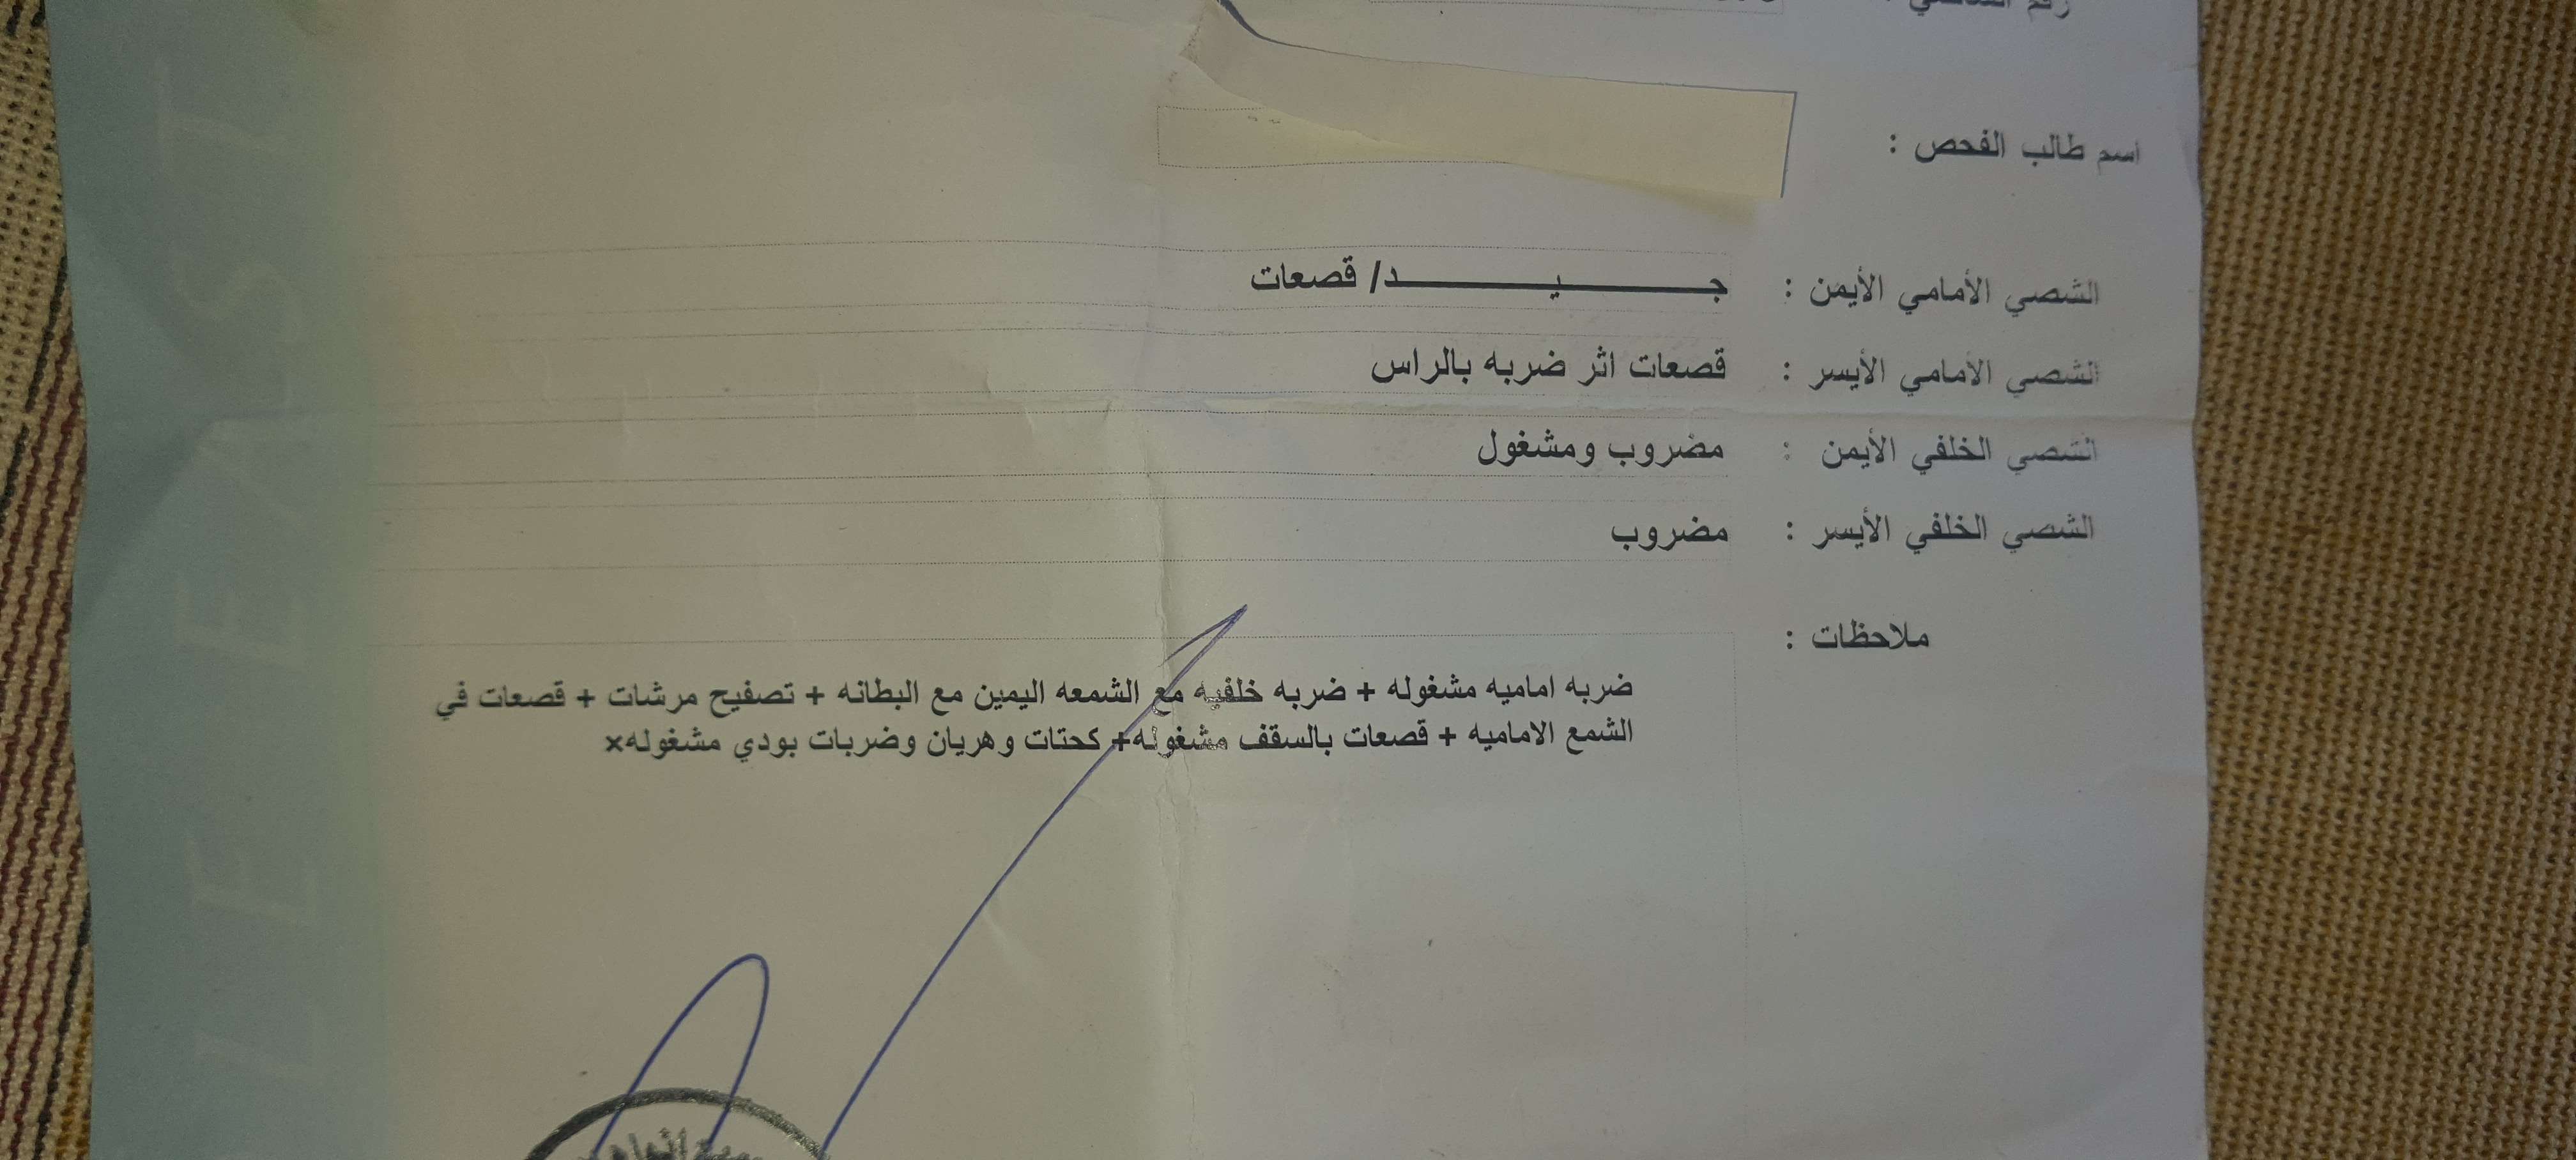 اسم طالب الفحص :
الشصي الأمامي الأيمن : جـــــيـــــد/ قصعات
الشصي الأمامي الأيسر : قصعات اثر ضربه بالراس
الشصي الخلفي الأيمن : مضروب ومشغول
الشصي الخلفي الأيسر : مضروب
ملاحظات :
ضربه اماميه مشغوله + ضربه خلفيه مع الشمعه اليمين مع البطانه + تصفيح مرشات + قصعات في
الشمع الاماميه + قصعات بالسقف مشغوله+ كحتات وهريان وضربات بودي مشغوله×